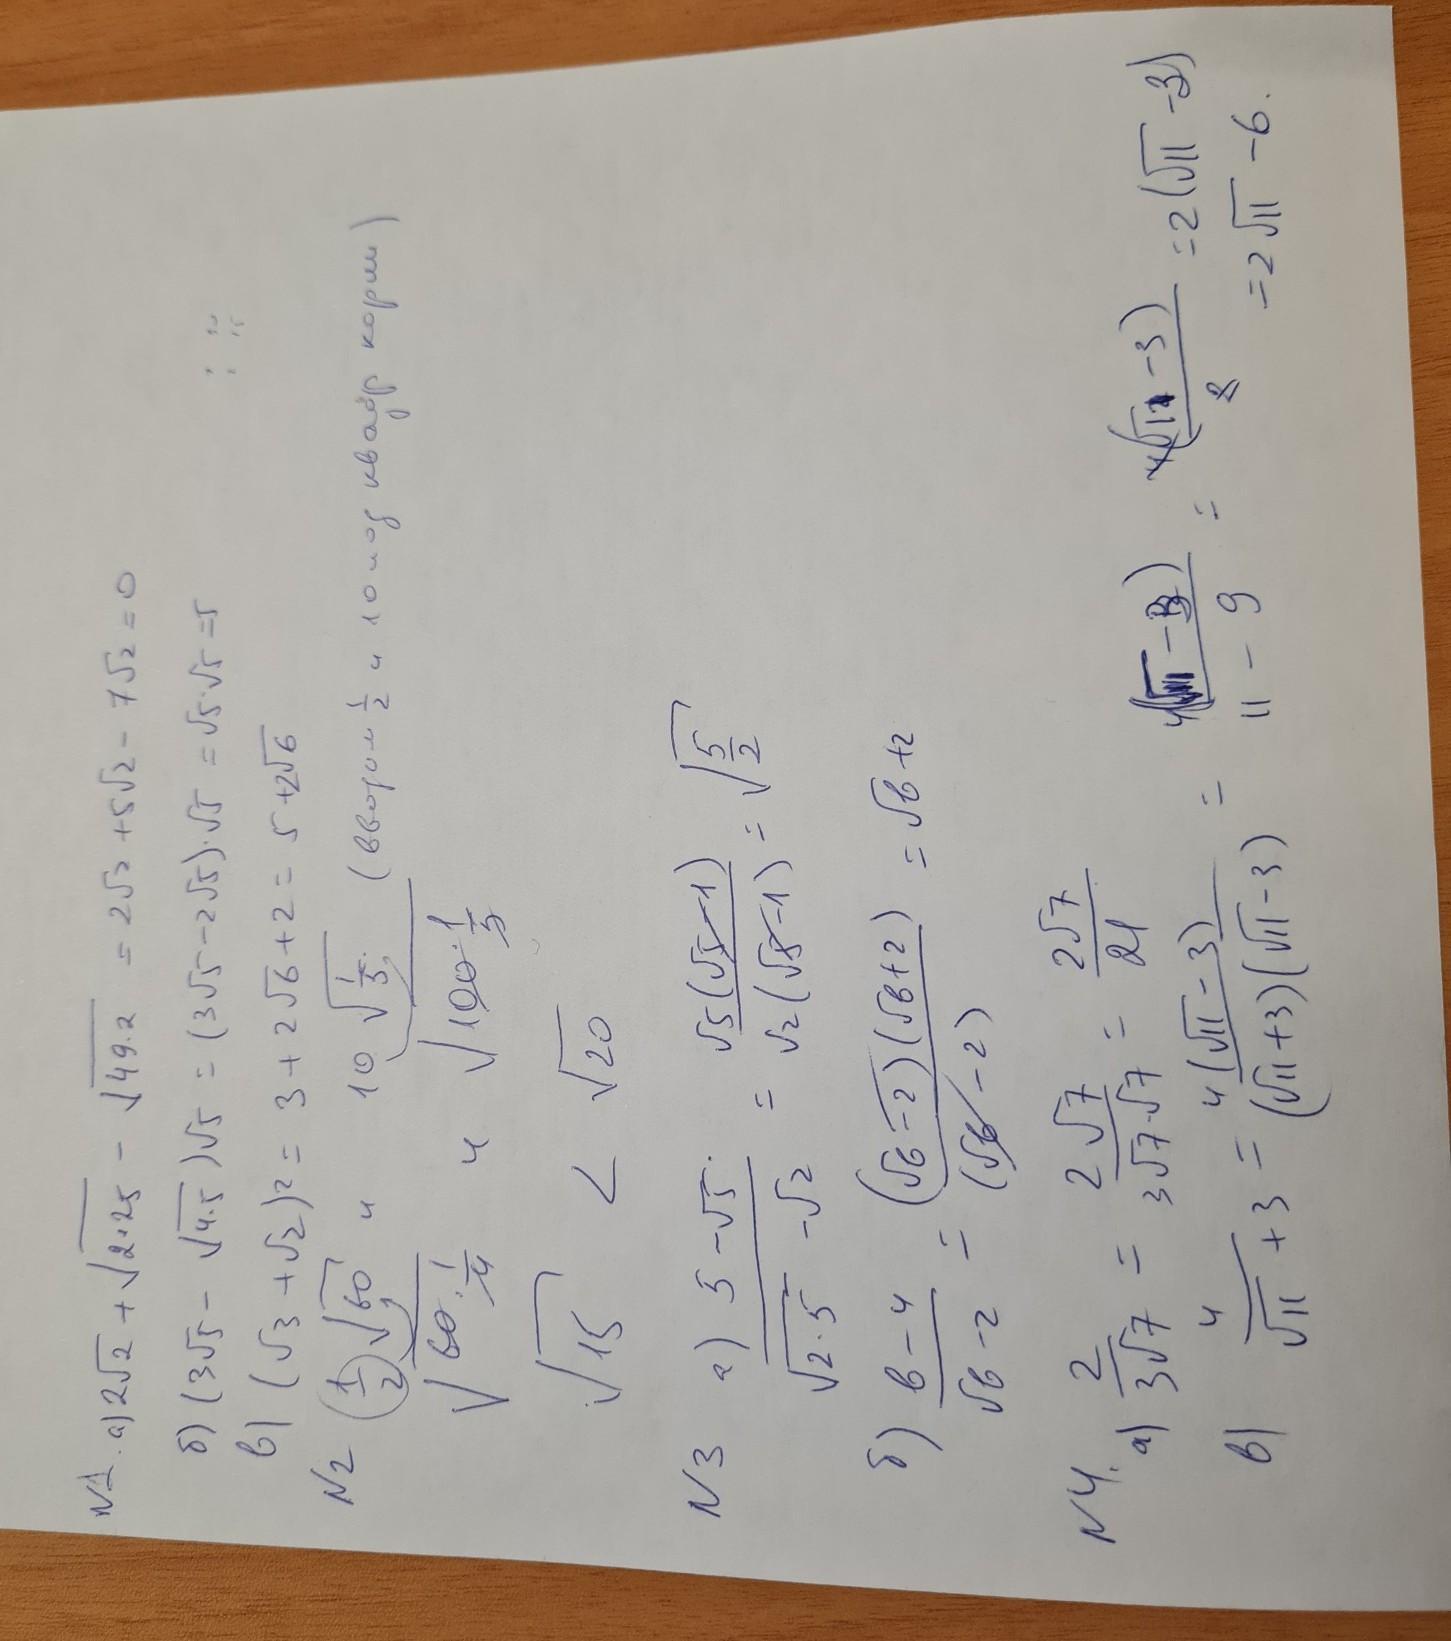 N1. а) 2√2 + √2·25 - √49·2 = 2√2 + 5√2 - 7√2 = 0
б) (3√5 - √4·5)√5 = (3√5 - 2√5)·√5 = √5·√5 = 5
в) (√3 + √2)² = 3 + 2√6 + 2 = 5 + 2√6
N2 (1/2)√60 и 10√1/5 (вводим 1/2 и 10 под квадр корни)
√60·1/4 и √100·1/5
√15 < √20
N3 а) 5-√5 / √2·5 - √2 = √5(√5-1) / √2(√5-1) = √5/2
б) 6-4 / √6-2 = (√6-2)(√6+2) / (√6-2) = √6+2
N4. а) 2 / 3√7 = 2√7 / 3√7·√7 = 2√7 / 21
в) 4 / √11+3 = 4(√11-3) / (√11+3)(√11-3) = 4(√11-3) / 11-9 = 4(√11-3) / 2 = 2(√11-3)
= 2√11-6.